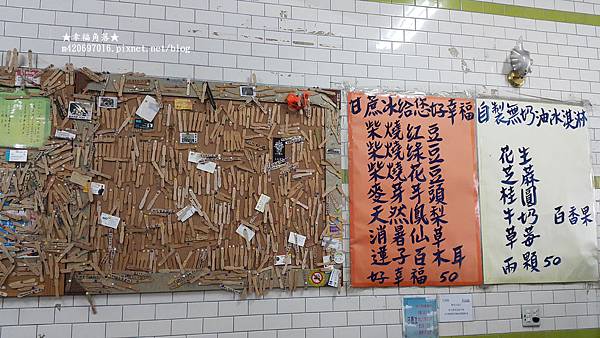 ★幸福角落★
m420697016.pixnet.net/blog
甘蔗冰給您好幸福
柴燒紅豆
柴燒綠豆
柴燒花豆
麥芽芋頭
天然鳳梨
消暑仙草
蓮子百木耳
好幸福 50
自製無奶油冰淇淋
花生
芝蔴
桂圓
牛奶 百香果
草莓
兩顆50